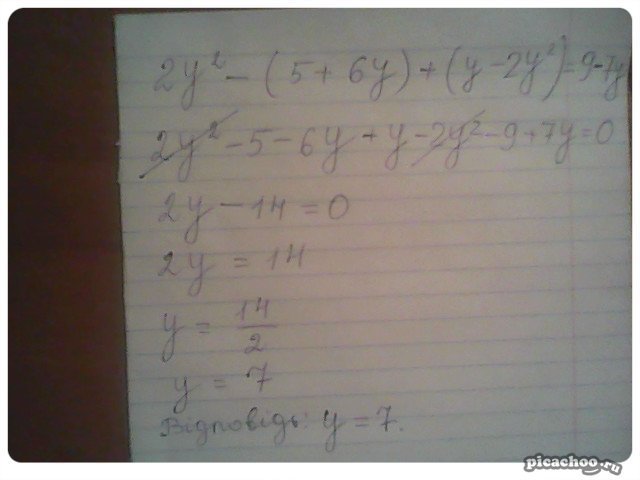 2y² - (5 + 6y) + (y - 2y²) = 9 - 7y
2y² - 5 - 6y + y - 2y² - 9 + 7y = 0
2y - 14 = 0
2y = 14
y = 14/2
y = 7
Відповідь: y = 7.
picachoo.ru